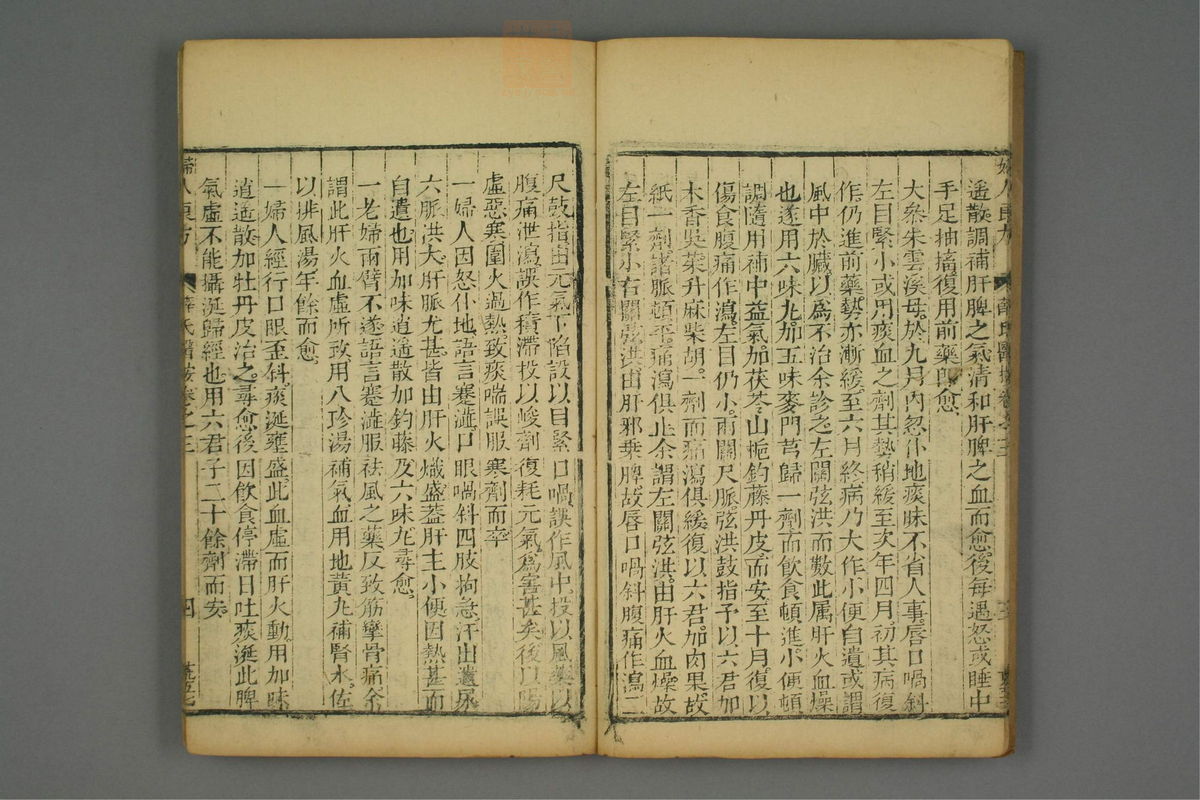 遙散調補肝脾之氣清和肝脾之血而愈後每遇怒或睡中
手足抽搐復用前藥即愈
大叅朱雲溪母於九月內忽仆地痰昧不省人事唇口喎斜
左目緊小或用痰血之劑其勢稍緩至次年四月初其病復
作仍進前藥勢亦漸緩至六月終病乃大作小便自遺或謂
風中於臟以爲不治余診之左關弦洪而數此屬肝火血燥
也遂用六味丸加五味麥門芎歸一劑而飲食頓進小便頓
調隨用補中益氣加茯苓山梔釣藤丹皮而安至十月復以
傷食腹痛作瀉左目仍小兩關尺脈弦洪鼓指予以六君加
木香吳茱升麻柴胡一劑而痛瀉俱緩復以六君加肉果故
紙一劑諸脈頓平痛瀉俱止余謂左關弦洪由肝火血燥故
左目緊小右關弦洪由肝邪乗脾故唇口喎斜腹痛作瀉二
婦人良方
薛氏醫按卷之三
尺鼓指由元氣下陷設以目緊口喎誤作風中投以風藥以
腹痛泄瀉誤作積滯投以峻劑復耗元氣爲害甚矣後以陽
虛惡寒圍火過熱致痰喘誤服寒劑而卒
一婦人因怒仆地語言蹇澁口眼喎斜四肢拘急汗出遺尿
六脈洪大肝脈尤甚皆由肝火熾盛葢肝主小便因熱甚而
自遺也用加味逍遙散加釣藤及六味丸尋愈
一老婦兩臂不遂語言蹇澁服祛風之藥反致筋攣骨痛余
謂此肝火血虛所致用八珍湯補氣血用地黃丸補腎水佐
以排風湯年餘而愈
一婦人經行口眼歪斜痰涎壅盛此血虛而肝火動用加味
逍遙散加牡丹皮治之尋愈後因飲食停滯日吐痰涎此脾
氣虛不能攝涎歸經也用六君子二十餘劑而安
婦人良方
薛氏醫按卷之三
四